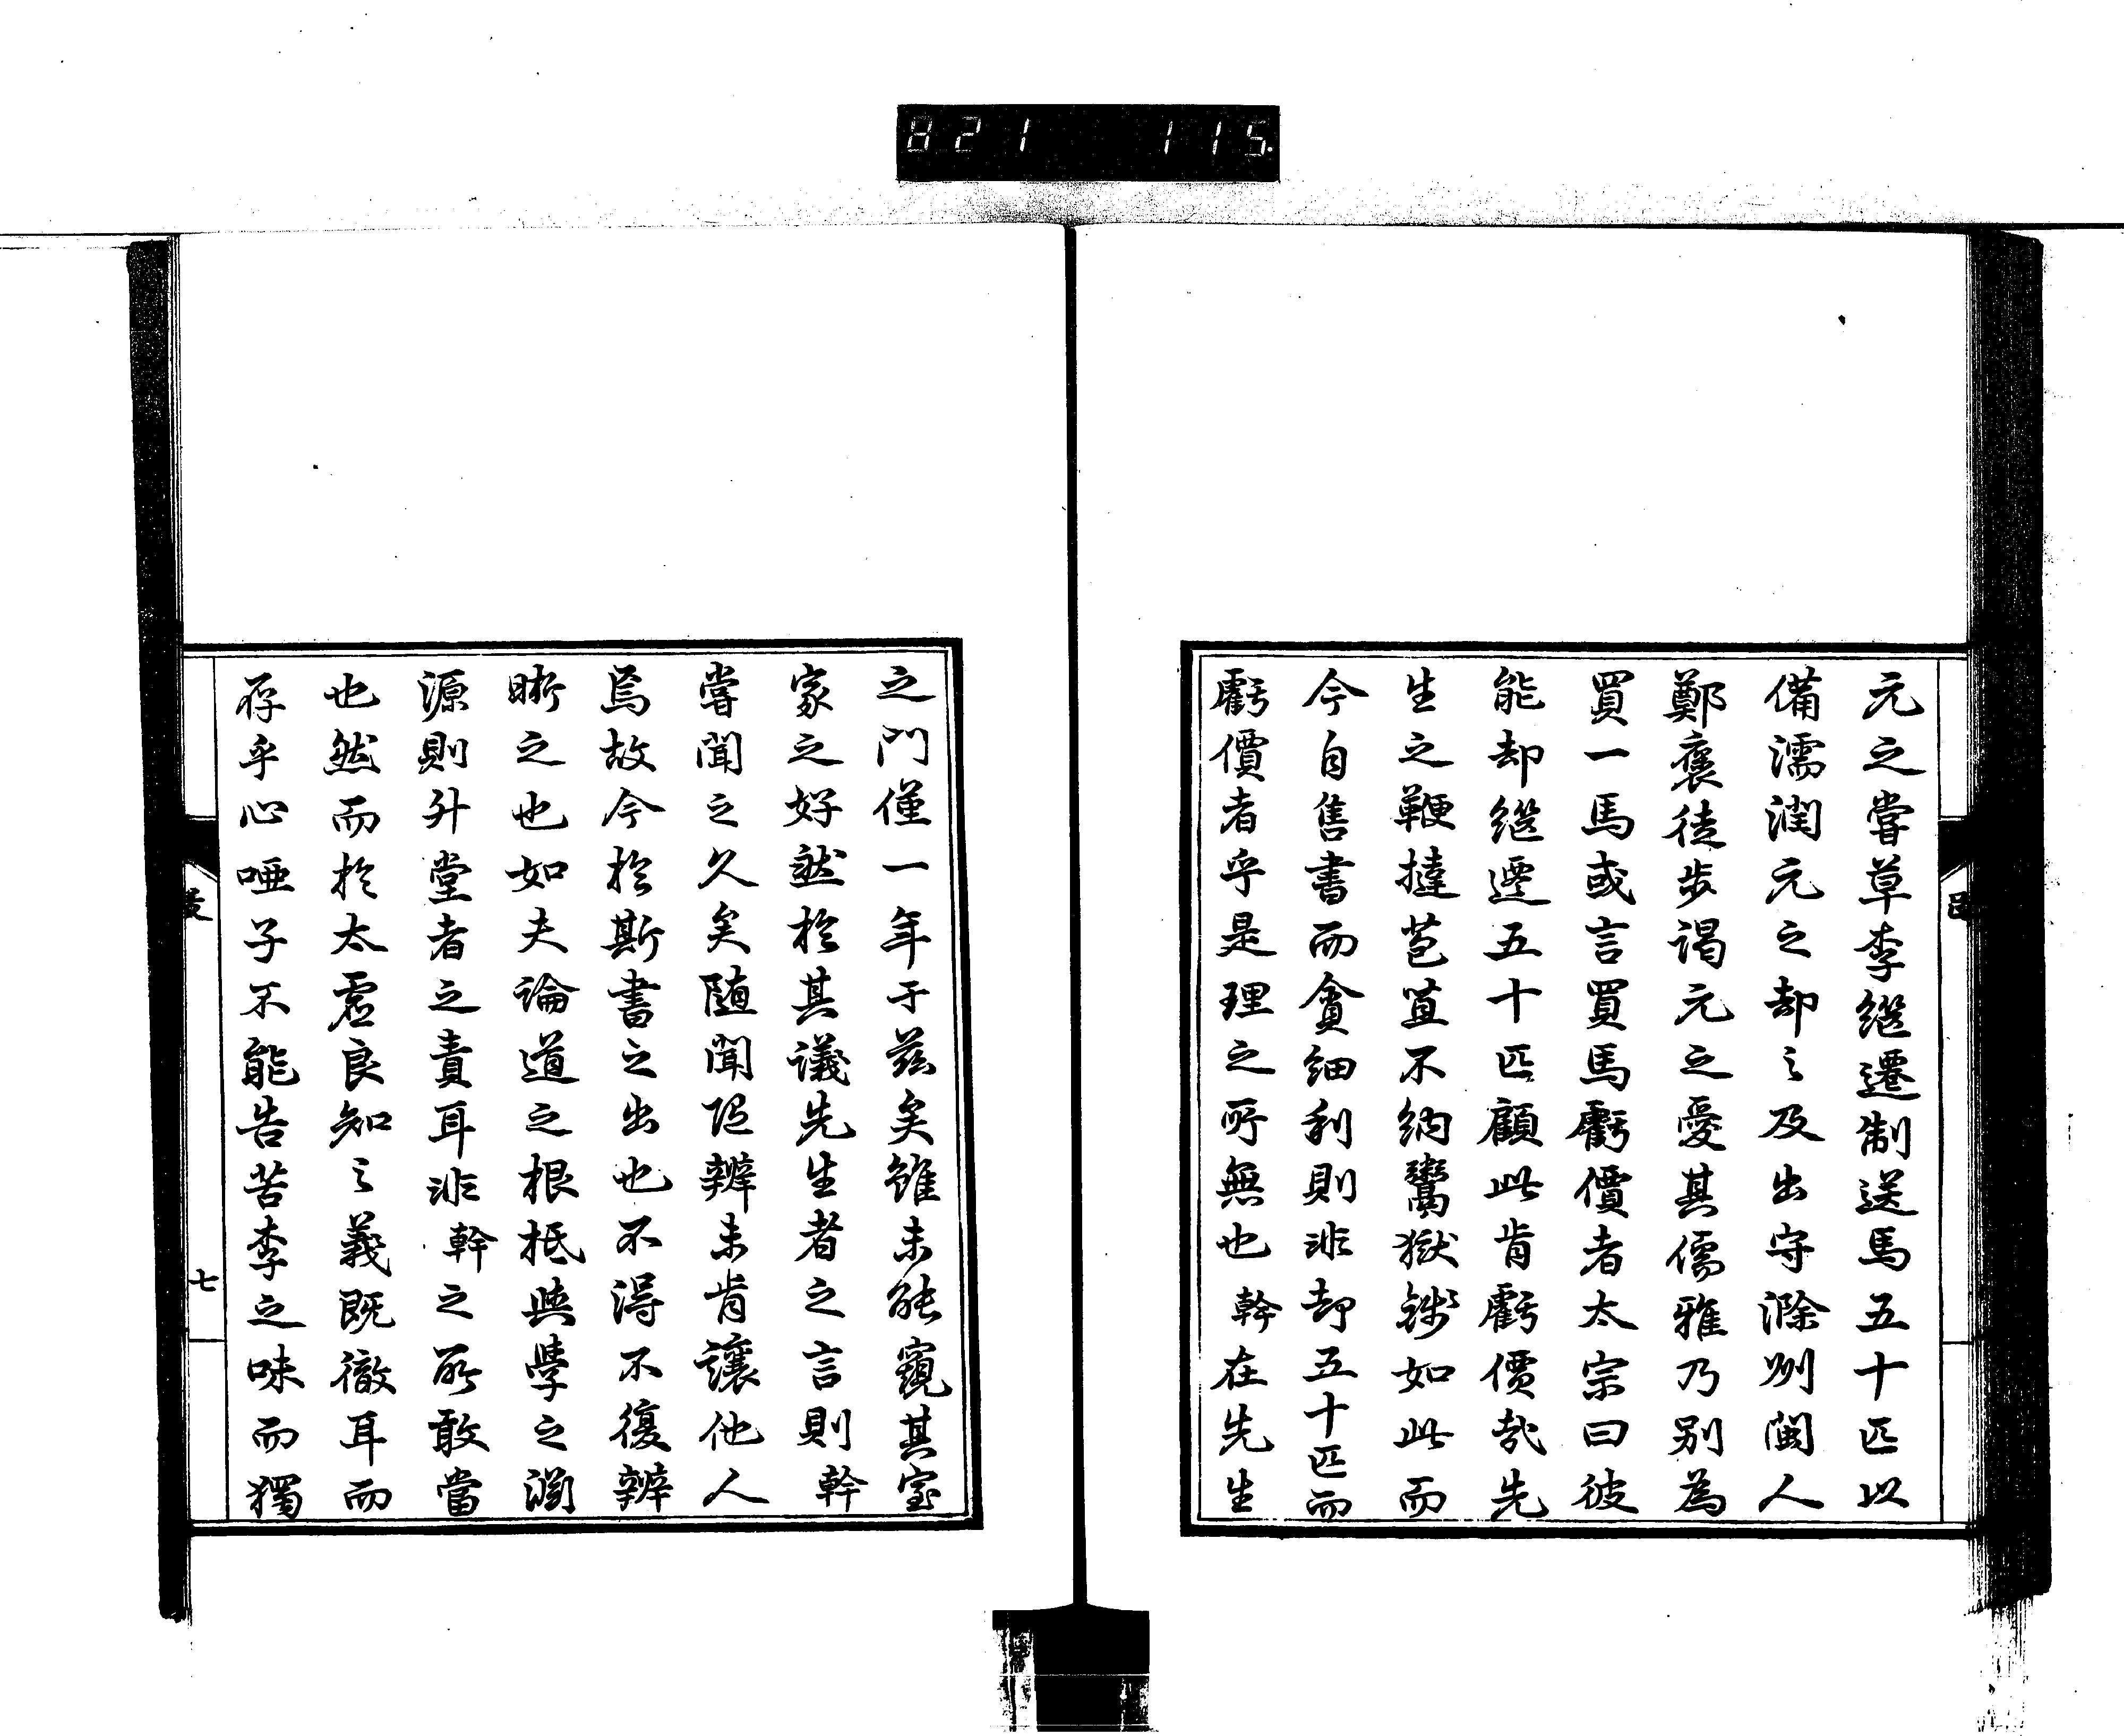 821 115.
元之嘗草李繼遷制送馬五十匹以
備濡潤元之却之及出守滁州閩人
鄭褒徒步謁元之愛其儒雅乃別為
買一馬或言買馬虧價者太宗曰彼
能却繼遷五十匹顧此肯虧價哉先
生之鞭撻苞苴不納鬻獄錢如此而
今自售書而貪細利則非却五十匹而
虧價者乎是理之所無也幹在先生
之門僅一年于茲矣雖未能窺其室
家之好然於其議先生者之言則幹
嘗聞之久矣随聞随辨未肯讓他人
焉故今於斯書之出也不得不復辨
晰之也如夫論道之根柢與學之淵
源則升堂者之責耳非幹之所敢當
也然而於太虛良知之義既徹耳而
存乎心唖子不能告苦李之味而獨
七